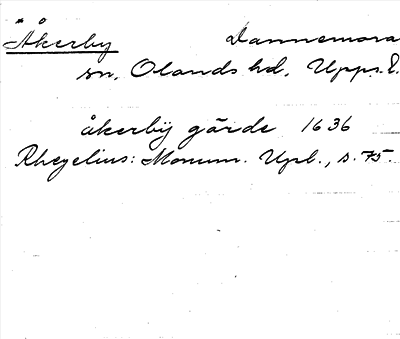 Åkerby Dannemora
sn, Olands hd, Upps. l.
åkerbÿ gärde 1636
Rhezelius: Monum. Upl., s. 75.